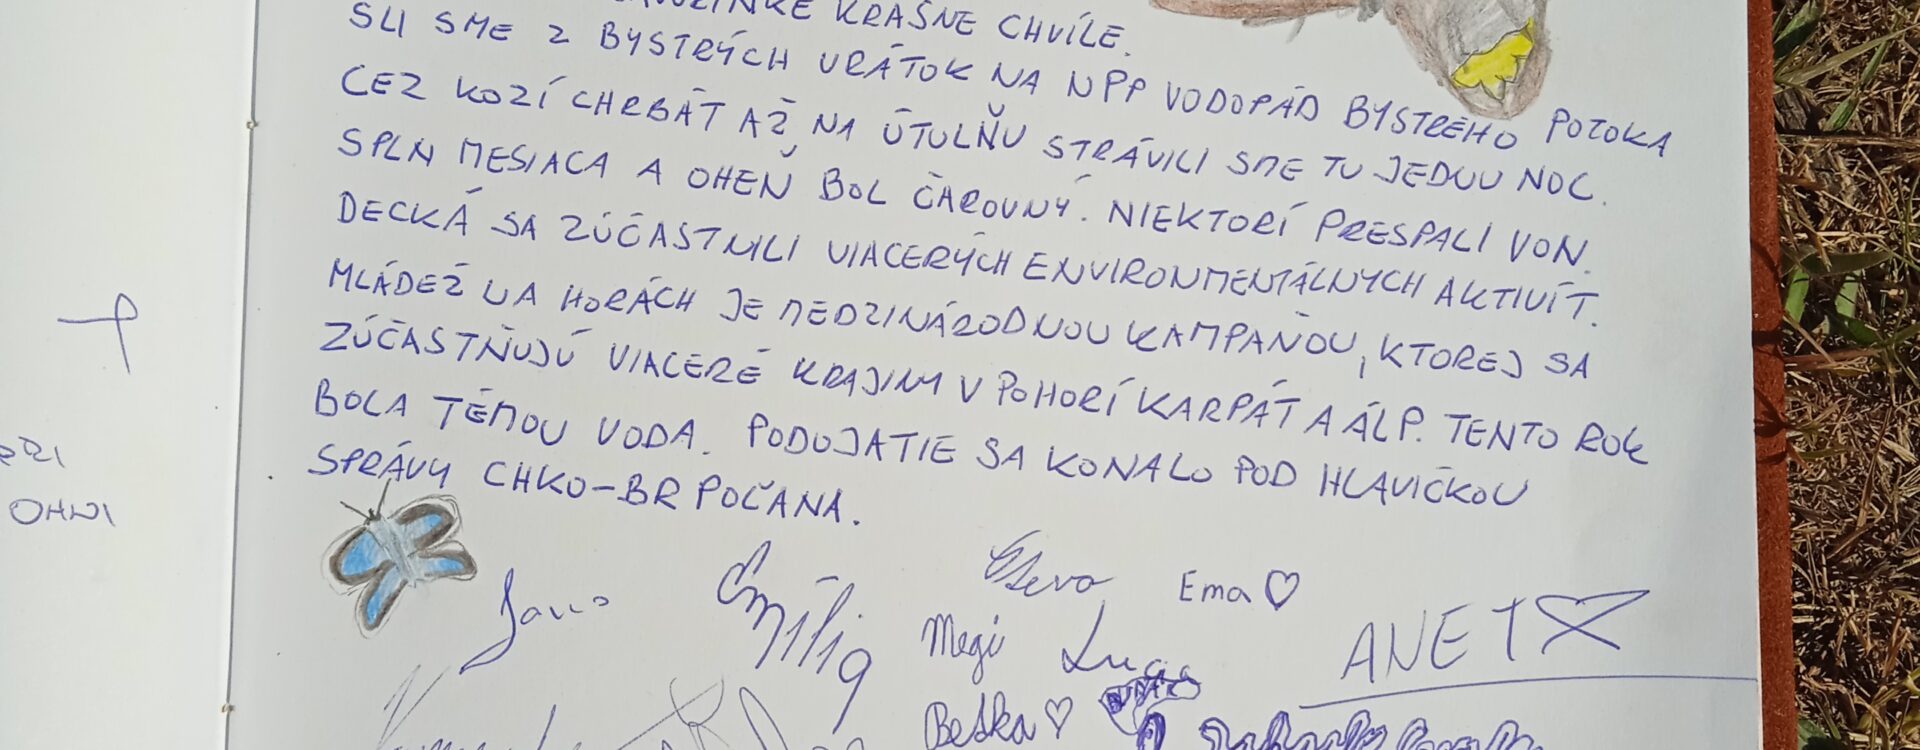 KRÁSNE CHVÍLE.
SLI SME Z BYSTRÝCH VRÁTOK NA NPP VODOPÁD BYSTRÉHO POTOKA
CEZ KOZÍ CHRBÁT AŽ NA ÚTULŇU STRÁVILI SME TU JEDNU NOC.
SPLN MESIACA A OHEŇ BOL ČAROVNÝ. NIEKTORÍ PRESPALI VON.
DECKÁ SA ZÚČASTNILI VIACERÝCH ENVIRONMENTÁLNYCH AKTIVÍT.
MLÁDEŽ NA HORÁCH JE MEDZINÁRODNOU KAMPAŇOU, KTOREJ SA
ZÚČASTŇUJÚ VIACERÉ KRAJINY V POHORÍ KARPÁT A ÁLP. TENTO ROK
BOLA TÉMOU VODA. PODUJATIE SA KONALO POD HLAVIČKOU
SPRÁVY CHKO-BR POĽANA.
OHNI
Emília
Ema ♡
Megi
Lucia
ANET
Betka ♡